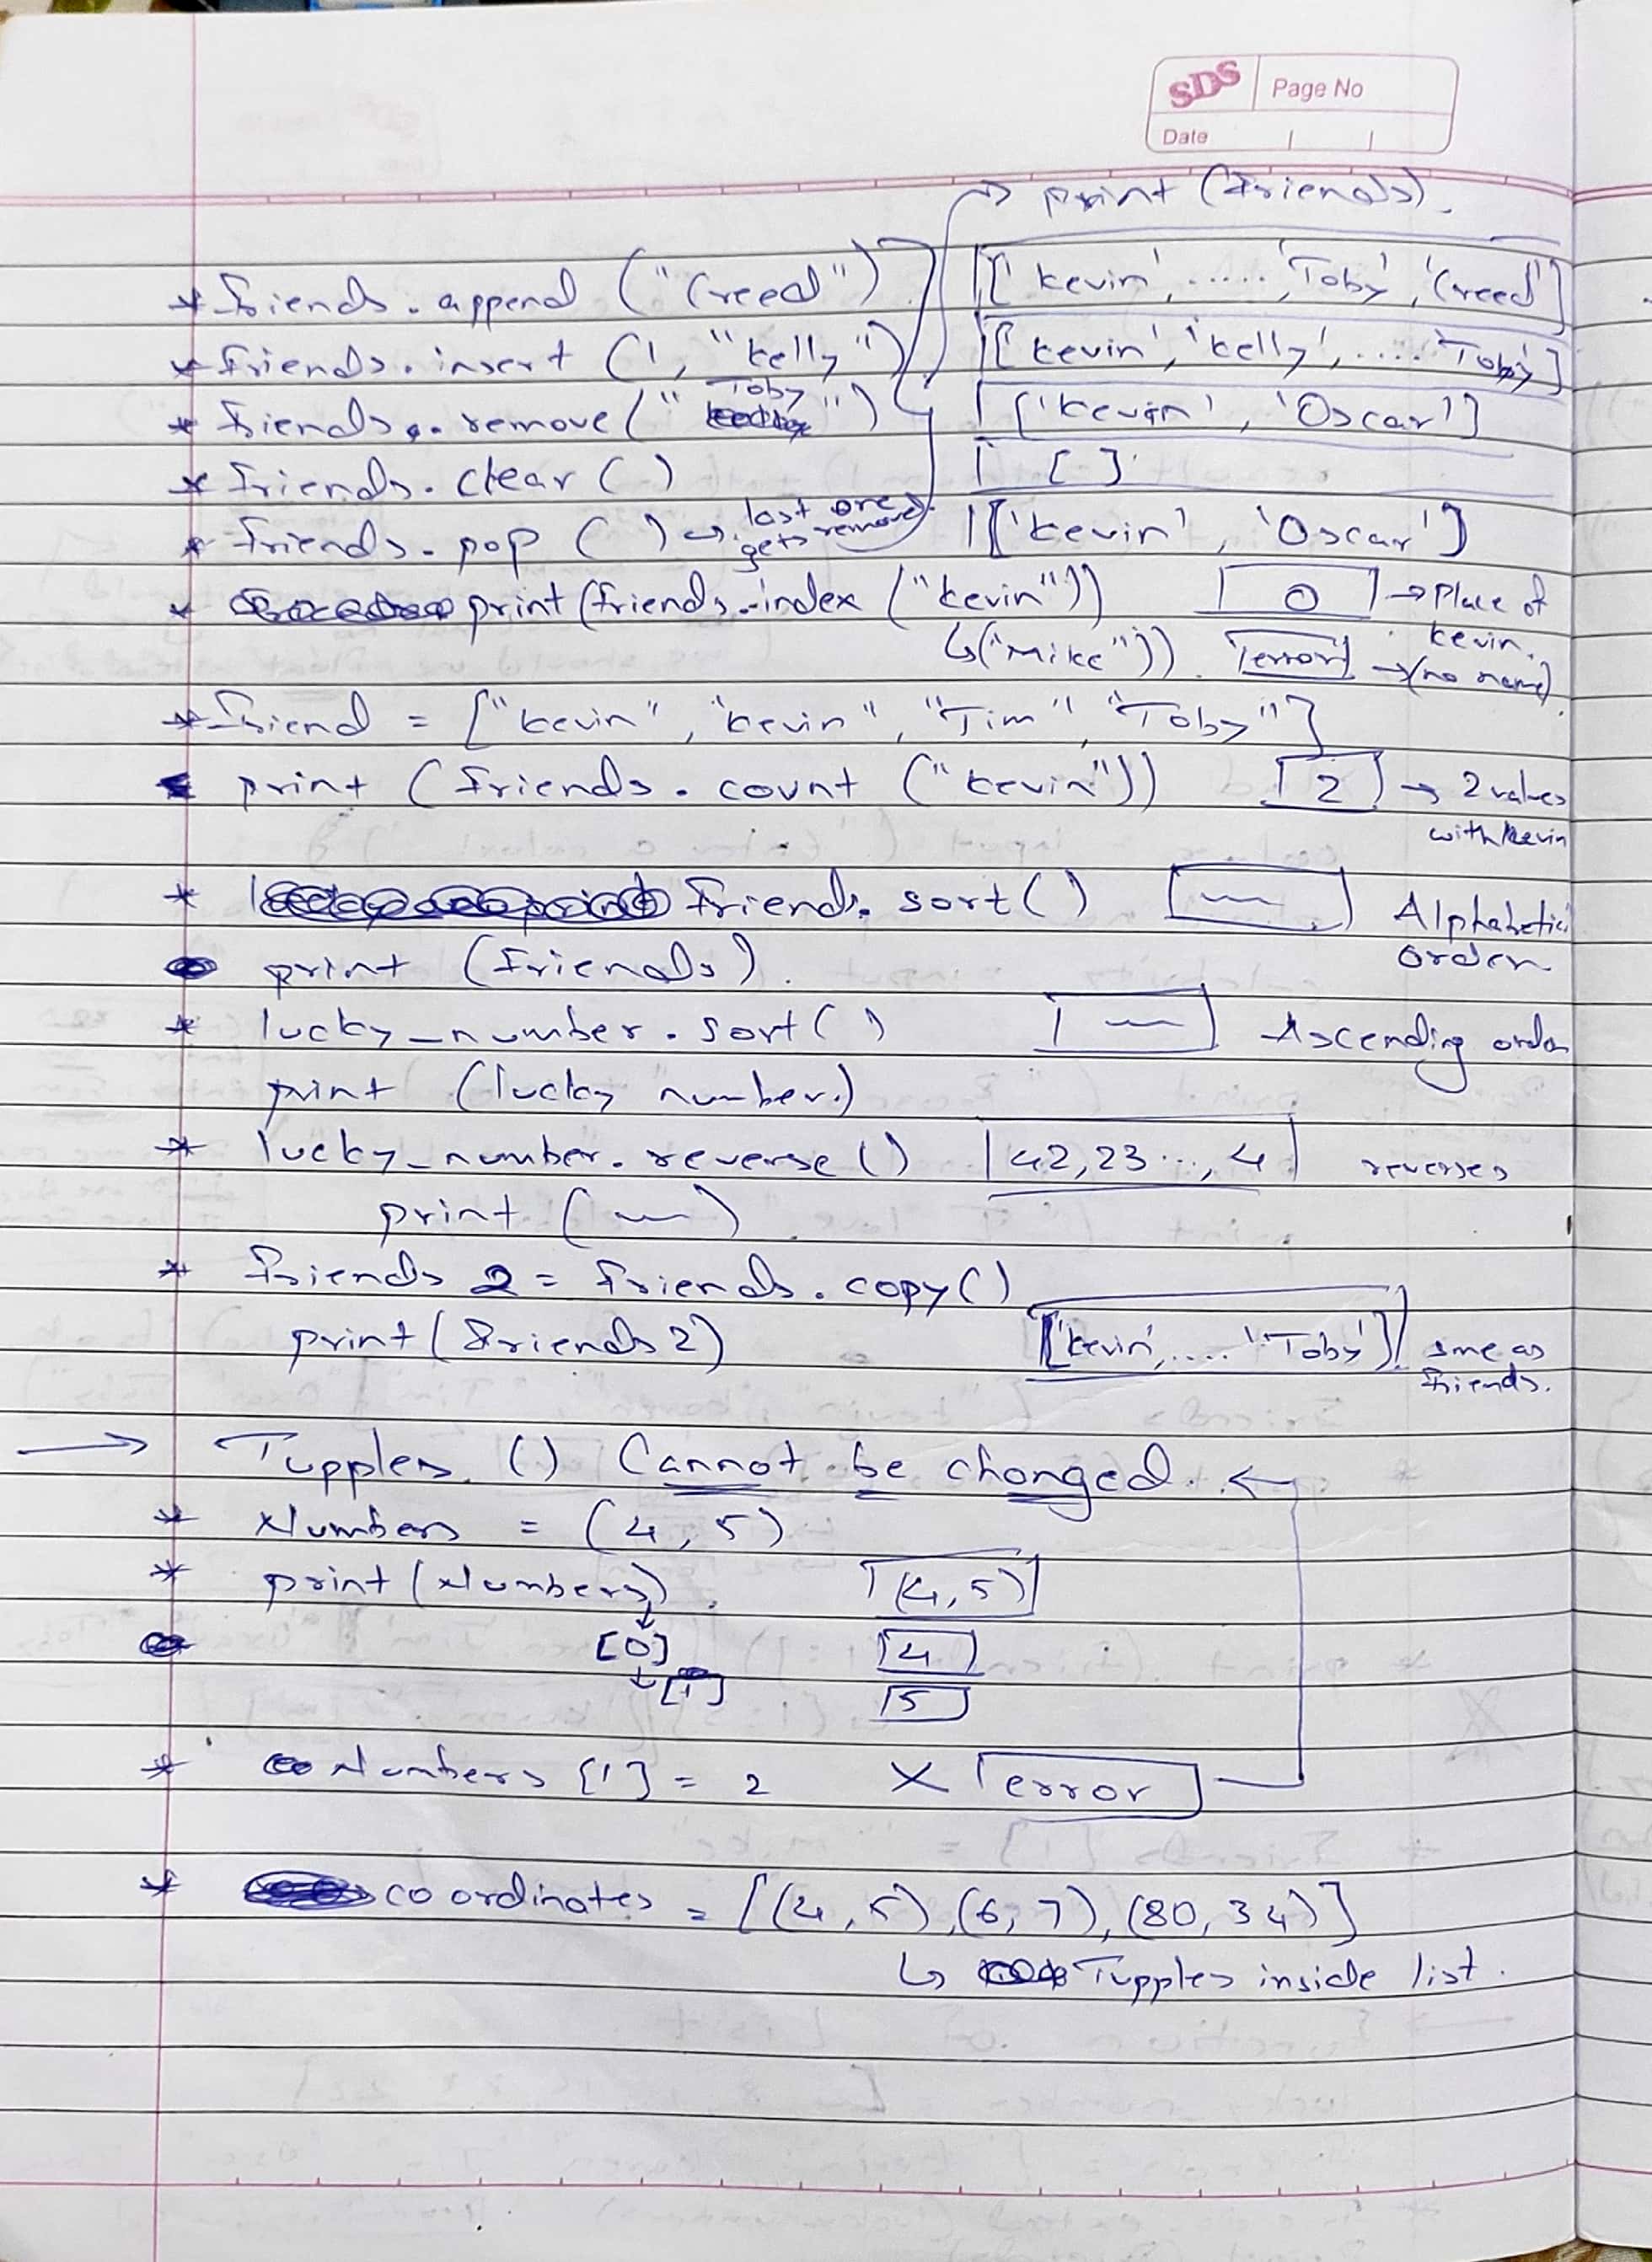 SDS Page No
Date
→ print (friends).
* friends.append ("Creed") ['kevin', ..... 'Toby', 'Creed']
* friends.insert (1, "kelly") ['kevin', 'kelly', .... 'Toby']
* friends.remove ("Toby") ['kevin', 'Oscar']
* friends.clear () [ ]
* friends.pop () → last one gets removed ['kevin', 'Oscar']
* print(friends.index ("kevin")) 0 → Place of kevin.
↳ ("Mike")) error → (no name)
* friend = ["kevin", "kevin", "Tim", "Toby"]
print (friends.count ("kevin")) 2 → 2 values with kevin
* friends.sort() Alphabetic order
print (friends).
* lucky_number.sort() Ascending order
print (lucky number.)
* lucky_number.reverse () 42,23...,4 reverses
print ( )
* friends 2 = friends.copy()
print(friends2) ['kevin', .... 'Toby'] sme as friends.
→ Tupples () Cannot be changed. ←
* Numbers = (4, 5)
* print (Numbers) (4, 5)
[0] 4
[1] 5
* Numbers [1] = 2 X error
* coordinates = [(4, 5), (6, 7), (80, 34)]
↳ Tupples inside list.